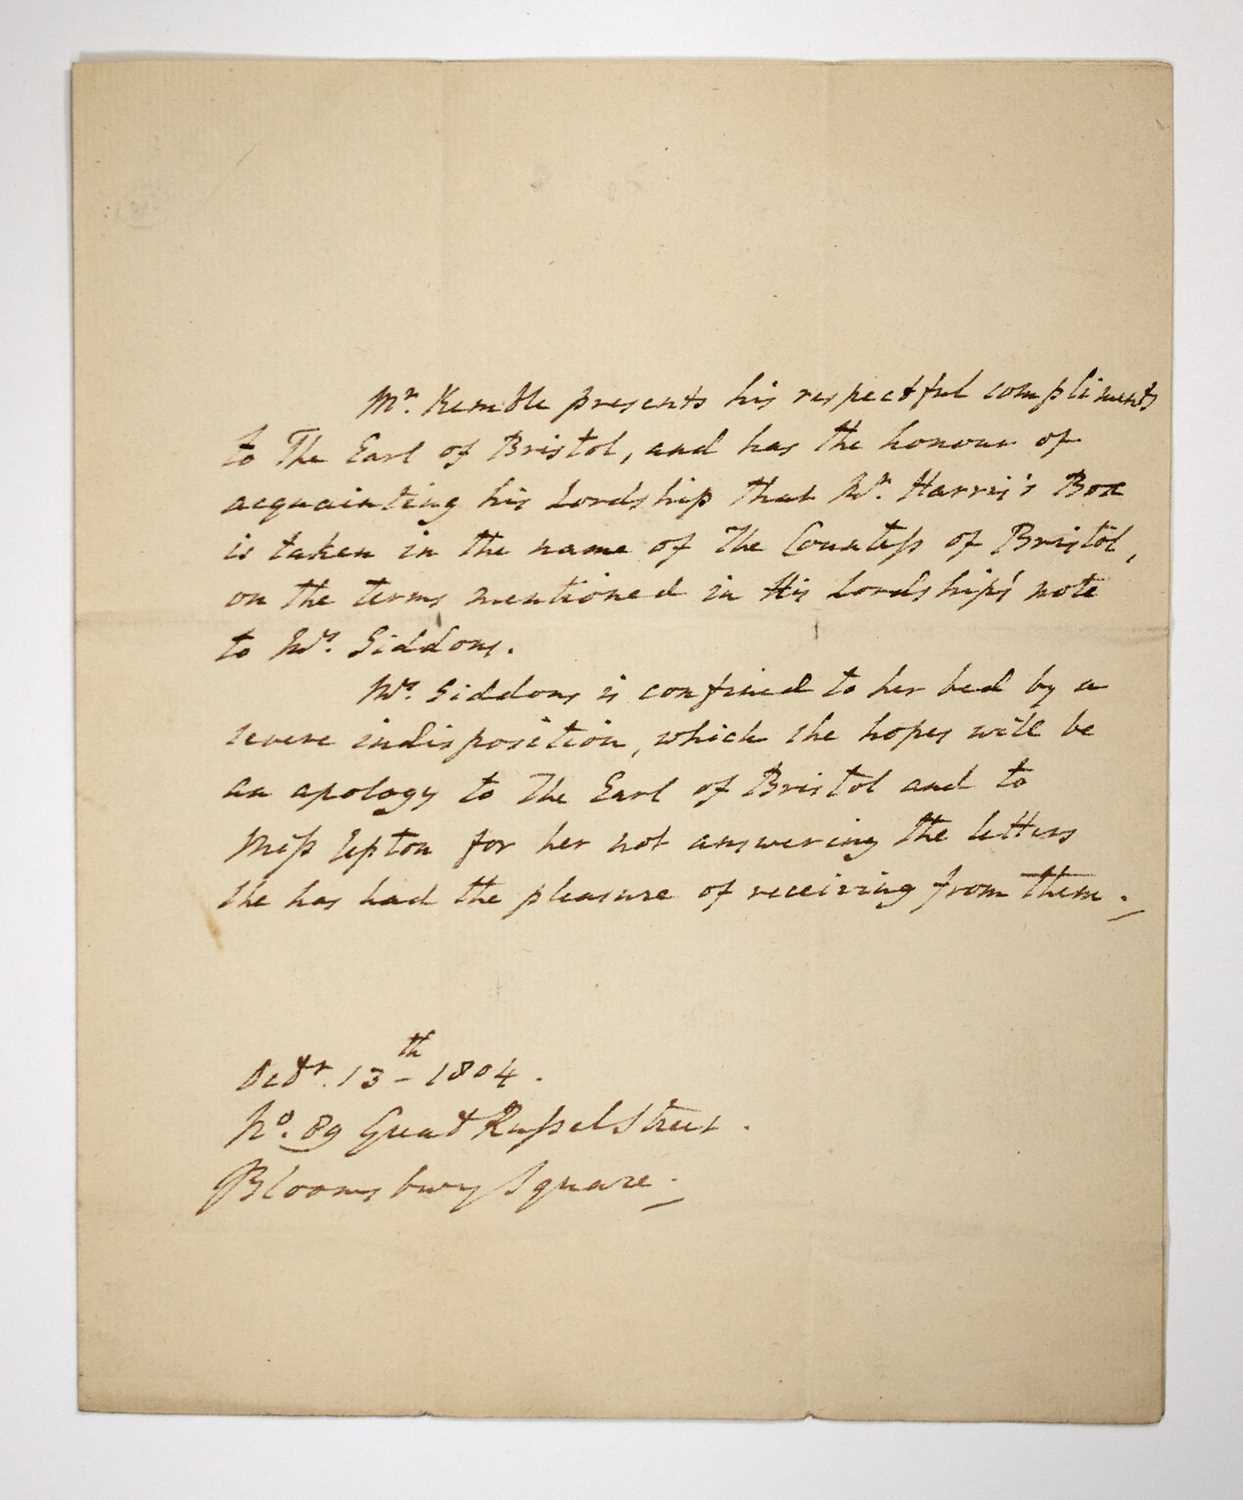 Mr. Kemble presents his respectful compliments
to The Earl of Bristol, and has the honour of
acquainting his Lordship that Mr. Harris's Box
is taken in the name of The Countess of Bristol,
on the terms mentioned in His Lordship's note
to Mrs. Siddons.
Mrs. Siddons is confined to her bed by a
severe indisposition, which she hopes will be
an apology to The Earl of Bristol and to
Miss Upton for her not answering the letters
she has had the pleasure of receiving from them.
Octr. 13th 1804.
No. 89 Great Russel Street.
Bloomsbury Square.